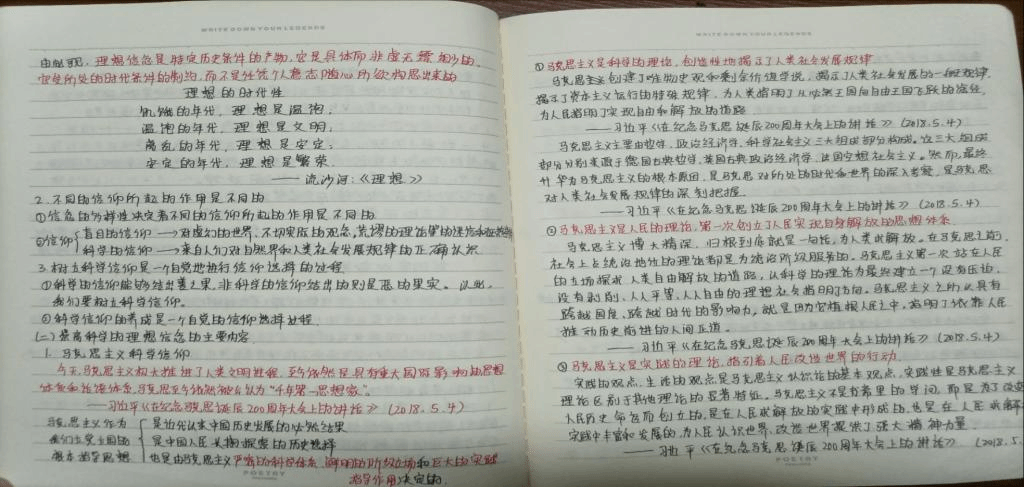 WRITE DOWN YOUR LEGENDS
由此可见，理想信念是特定历史条件的产物，它是具体而非虚无缥缈的。
它受所处的时代条件的制约，而不是凭个人意志随心所欲构思出来的
理想的时代性
饥饿的年代，理想是温饱；
温饱的年代，理想是文明；
离乱的年代，理想是安定；
安定的年代，理想是繁荣.
——流沙河：《理想》
2. 不同的信仰所起的作用是不同的
①信念的多样性决定着不同的信仰所起的作用是不同的
②信仰
盲目的信仰 → 对虚幻的世界、不切实际的观念、荒谬的理论等的迷信和狂热崇拜
科学的信仰 → 来自人们对自然界和人类社会发展规律的正确认识
3. 树立科学信仰是一个自觉地进行信仰选择的过程
①科学的信仰能够结出善之果，非科学的信仰结出的则是恶的果实。以此，
我们要树立科学信仰。
②科学信仰的养成是一个自觉的信仰选择过程.
(二) 崇高科学的理想信念的主要内容
1. 马克思主义科学信仰
今天，马克思主义极大推进了人类文明进程，至今依然是具有重大国际影响的思想
体系和话语体系，马克思至今依然被公认为“千年第一思想家”。
——习近平《在纪念马克思诞辰200周年大会上的讲话》(2018.5.4)
马克思主义作为
我们立党立国的
根本指导思想
是近代以来中国历史发展的必然结果
是中国人民长期探索的历史选择
也是由马克思主义严密的科学体系、鲜明的阶级立场和巨大的实践
指导作用决定的.
POETRY
WRITE DOWN YOUR LEGENDS
①马克思主义是科学的理论，创造性地揭示了人类社会发展规律
马克思主义创建了唯物史观和剩余价值学说，揭示了人类社会发展的一般规律，
揭示了资本主义运行的特殊规律，为人类指明了从必然王国向自由王国飞跃的途径，
为人民指明了实现自由和解放的道路
——习近平《在纪念马克思诞辰200周年大会上的讲话》(2018.5.4)
马克思主义主要由哲学、政治经济学、科学社会主义三大组成部分构成。这三大组成
部分分别来源于德国古典哲学、英国古典政治经济学、法国空想社会主义。然而，最终
升华为马克思主义的根本原因，是马克思对所处的时代和世界的深入考察，是马克思
对人类社会发展规律的深刻把握.
——习近平《在纪念马克思诞辰200周年大会上的讲话》(2018.5.4)
②马克思主义是人民的理论，第一次创立了人民实现自身解放的思想体系
马克思主义博大精深，归根到底就是一句话，为人类求解放。在马克思之前，
社会上占统治地位的理论都是为统治阶级服务的。马克思主义第一次站在人民
的立场探求人类自由解放的道路，以科学的理论为最终建立一个没有压迫、
没有剥削、人人平等、人人自由的理想社会指明了方向。马克思主义之所以具有
跨越国度、跨越时代的影响力，就是因为它植根人民之中，指明了依靠人民
推动历史前进的人间正道。
——习近平《在纪念马克思诞辰200周年大会上的讲话》(2018.5.4)
③马克思主义是实践的理论，指引着人民改造世界的行动.
实践的观点、生活的观点是马克思主义认识论的基本观点，实践性是马克思主义
理论区别于其他理论的显著特征。马克思主义不是书斋里的学问，而是为了改变
人民历史命运而创立的，是在人民求解放的实践中形成的，也是在人民求解放
实践中丰富和发展的，为人民认识世界、改造世界提供了强大精神力量.
——习近平《在纪念马克思诞辰200周年大会上的讲话》(2018.5.
POETRY